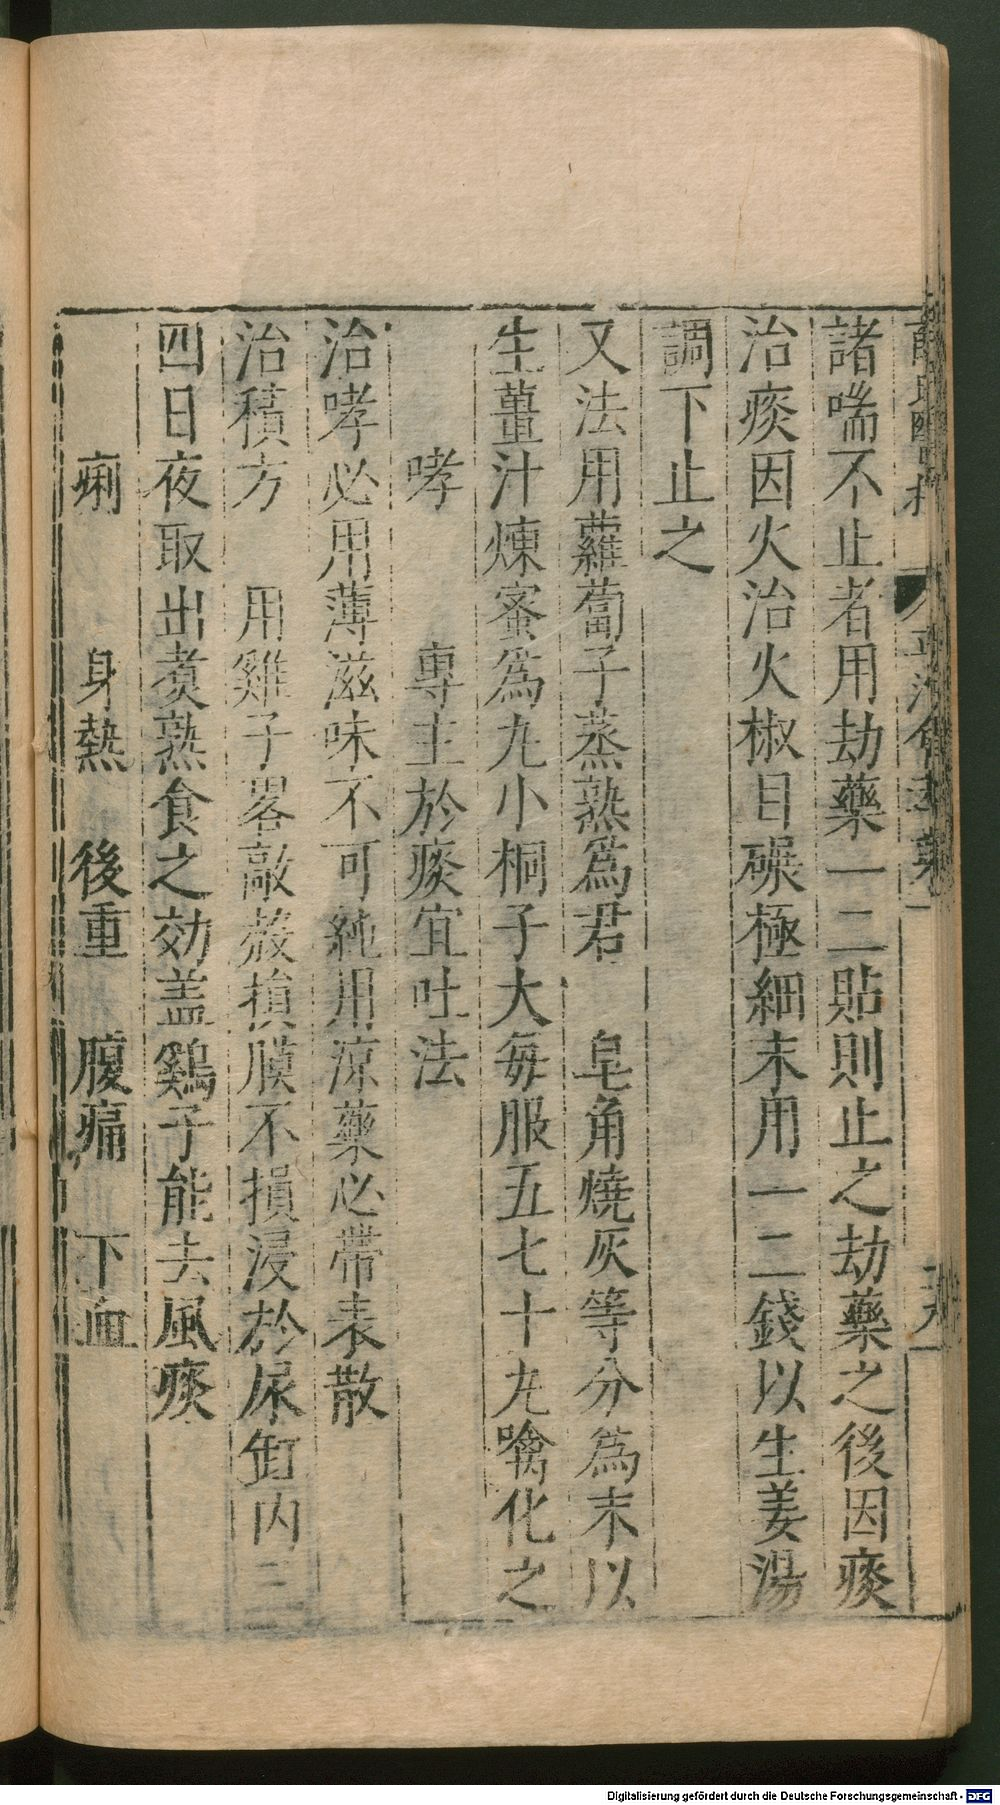 諸喘不止者用劫藥一二貼則止之劫藥之後因痰
治痰因火治火椒目碾極細末用一二錢以生姜湯
調下止之
又法用蘿蔔子蒸熟爲君　皂角燒灰等分爲末以
生薑汁煉蜜爲丸小桐子大每服五七十丸噙化之
哮　　專主於痰宜吐法
治哮必用薄滋味不可純用凉藥必帶表散
治積方　用雞子畧敲殼損膜不損浸於尿缸内三
四日夜取出煮熟食之効盖鷄子能去風痰
痢　　身熱　後重　腹痛　下血
Digitalisierung gefördert durch die Deutsche Forschungsgemeinschaft - DFG